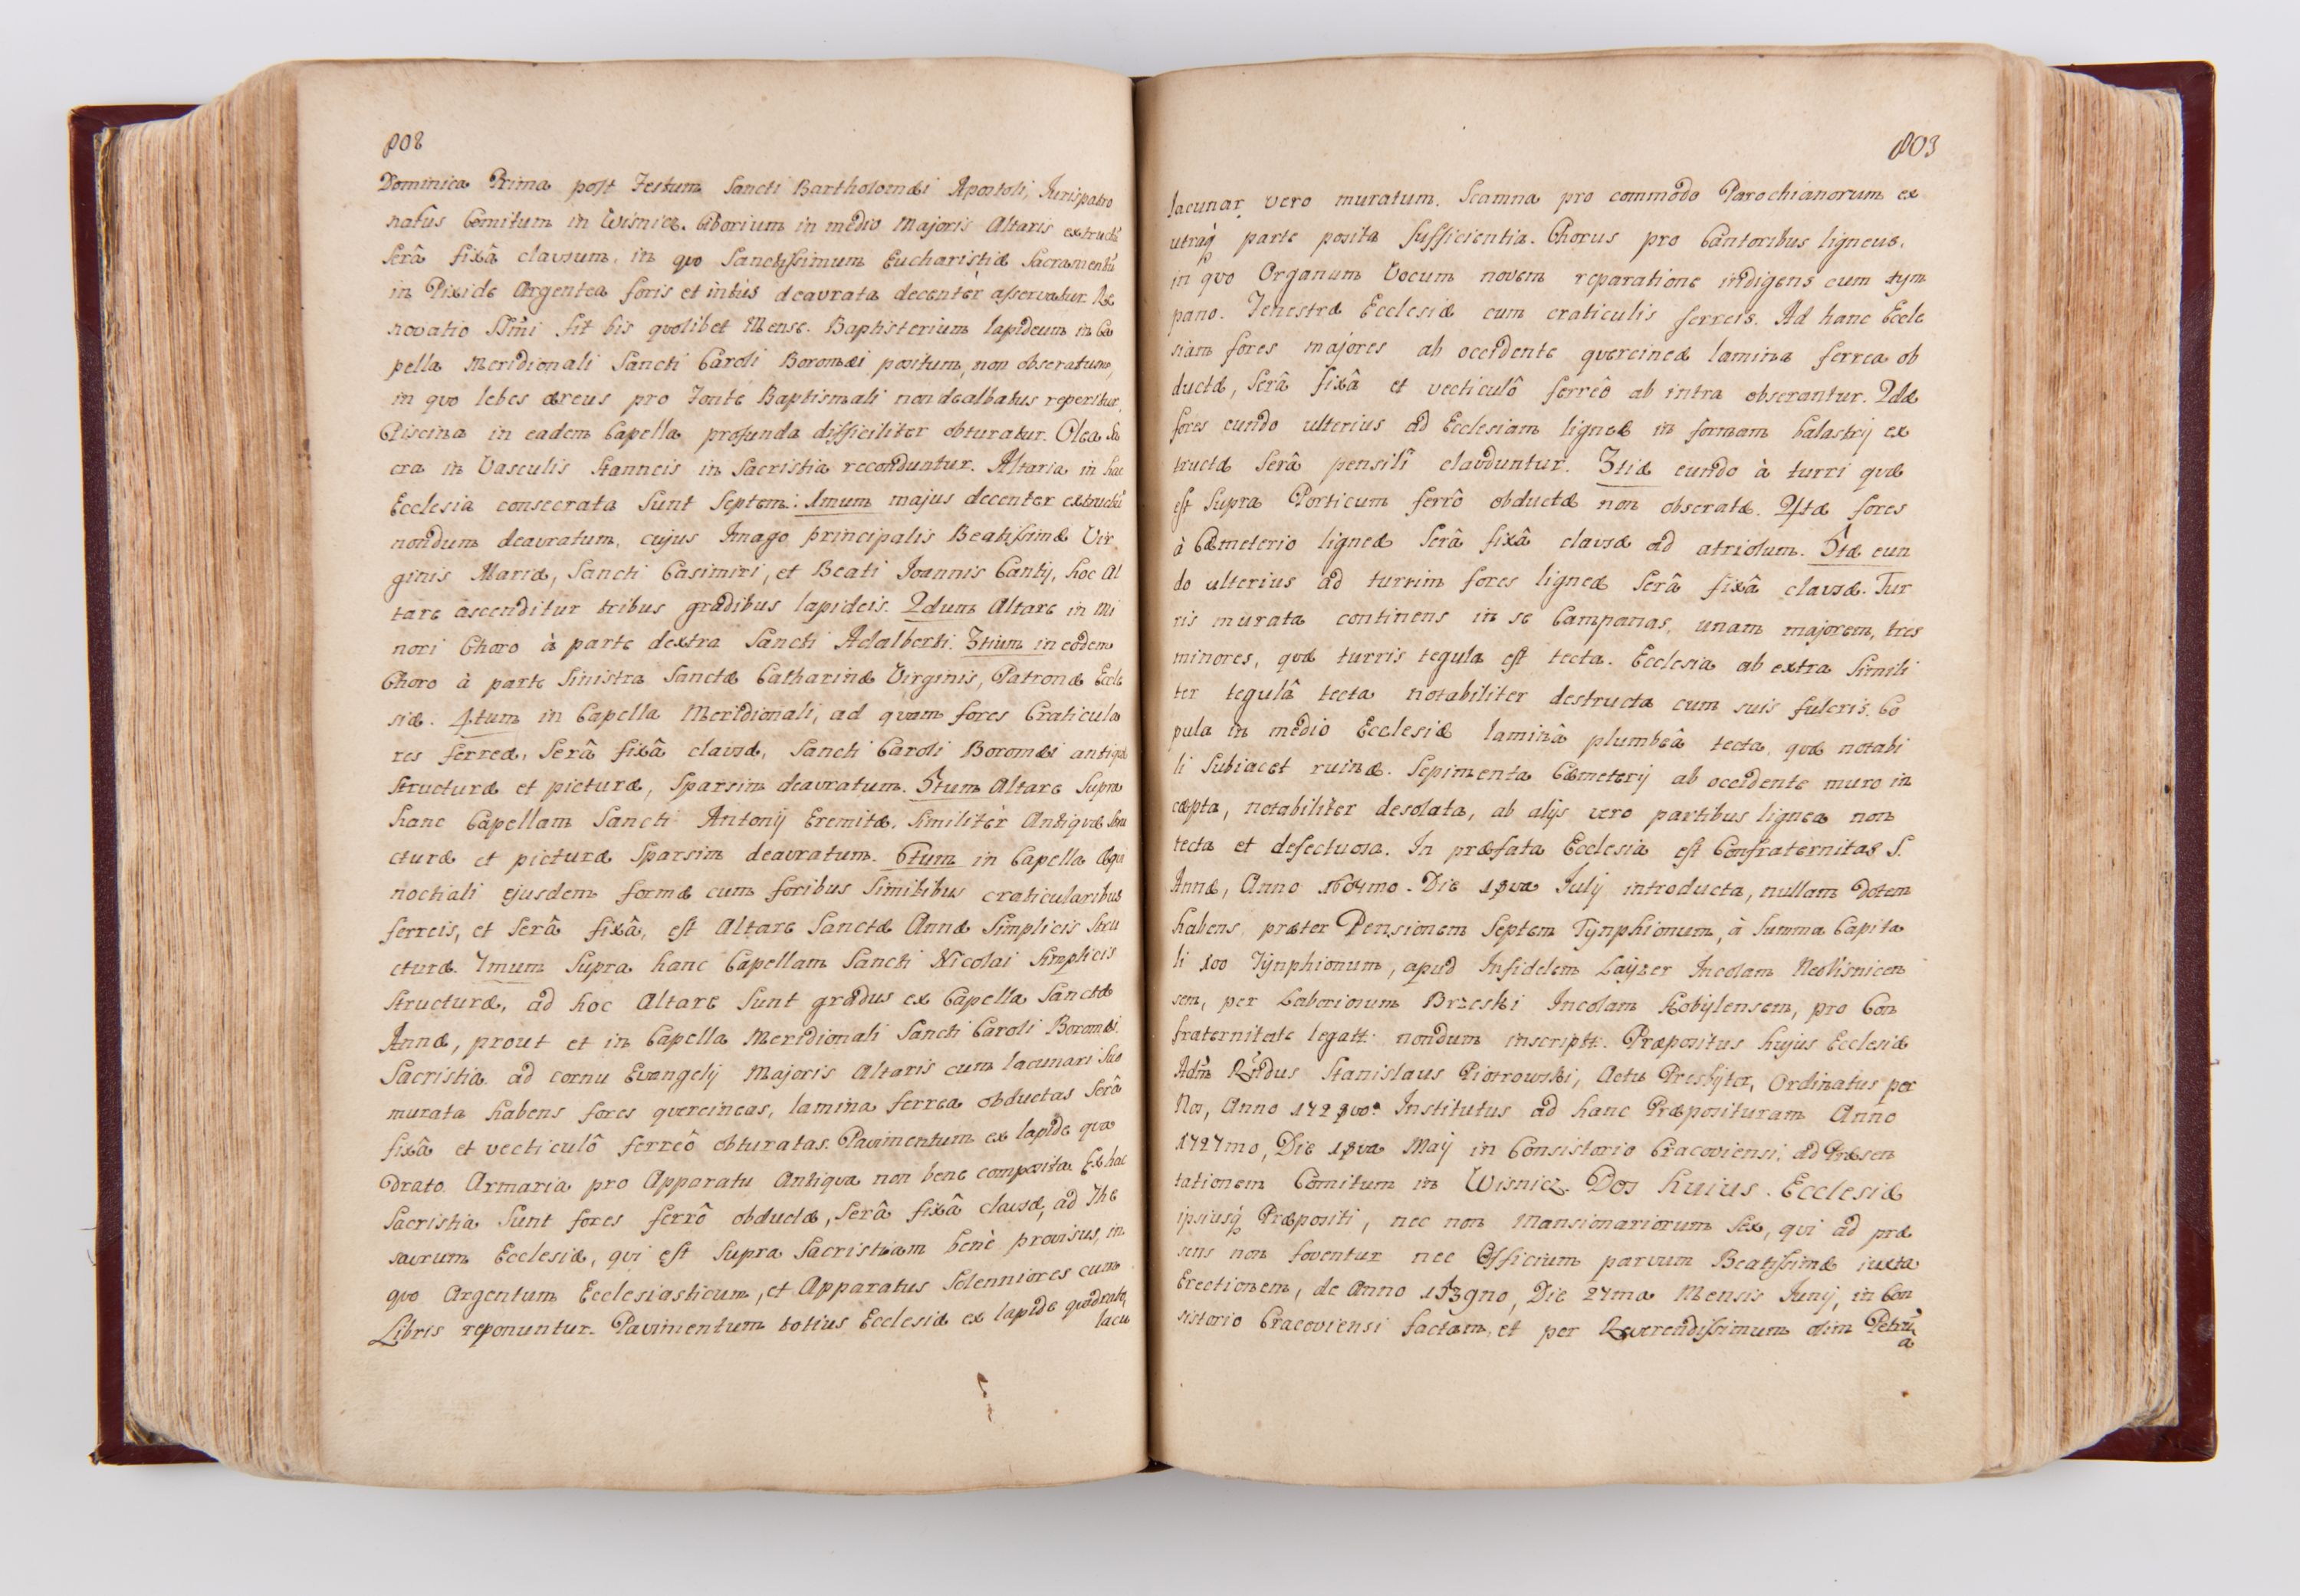 802
Dominica Prima post Festum Sancti Bartholomæi Apostoli, Jurispatro
natûs Comitum in Wisnicz. Ciborium in medio Majoris Altaris extructũ
Serâ fixâ clausum, in quo Sanctissimum Eucharistiæ Sacramentũ
in Pixide Argentea foris et intùs deaurata decentèr asservatur. Re
novatio SSmi fit bis quolibet Mense. Baptisterium lapideum in Ca
pella Meridionali Sancti Caroli Boromæi positum, non obseratum,
in quo lebes æreus pro Fonte Baptismali non dealbatus reperitur.
Piscina in eadem Capella profunda difficiliter obturatur. Olea Sa
cra in Vasculis Stanneis in Sacristia reconduntur. Altaria in hac
Ecclesia consecrata Sunt Septem: 1mum majus decenter extructũ
nondum deauratum, cujus Imago principalis Beatissimæ Vir
ginis Mariæ, Sancti Casimiri, et Beati Joannis Cantij, hoc Al
tare ascenditur tribus gradibus lapideis. 2dum Altare in Mi
nori Choro à parte dextra Sancti Adalberti. 3tium in eodem
Choro à parte Sinistra Sanctæ Catharinæ Virginis, Patronæ Eccle
siæ. 4tum in Capella Meridionali, ad quam fores Craticula
res ferreæ, Serâ fixâ clausæ, Sancti Caroli Boromæi antiquæ
Structuræ et picturæ, Sparsim deauratum. 5tum Altare Supra
hanc Capellam Sancti Antonij Eremitæ, Similitèr Antiquæ Stru
cturæ et picturæ Sparsim deauratum. 6tum in Capella Æqui
noctiali ejusdem formæ cum foribus Similibus craticularibus
ferreis, et Serâ fixâ, est Altare Sanctæ Annæ Simplicis Stru
cturæ. 7mum Supra hanc Capellam Sancti Nicolai Simplicis
Structuræ, ad hoc Altare Sunt gradus ex Capella Sanctæ
Annæ, prout et in Capella Meridionali Sancti Caroli Boromæi.
Sacristia ad cornu Evangelij Majoris Altaris cum lacunari Suo
murata habens fores quercineas, lamina ferrea obductas Serâ
fixâ et vecticulô ferreô obturatas. Pavimentum ex lapide qua
drato. Armaria pro Apparatu Antiqua non bene composita. Ex hac
Sacristia Sunt fores ferrô obductæ, Serâ fixâ clausæ, ad The
saurum Ecclesiæ, qui est Supra Sacristiam benè provisus, in
quo Argentum Ecclesiasticum, et Apparatus Solenniores cum
Libris reponuntur. Pavimentum totius Ecclesiæ ex lapide quadrato,
lacu
803
lacunar vero muratum. Scamna pro commodo Parochianorum ex
utraq parte posita Sufficientia. Chorus pro Cantoribus ligneus,
in quo Organum Vocum novem reparatione indigens cum tym
pano. Fenestræ Ecclesiæ cum craticulis ferreis. Ad hanc Eccle
siam fores majores ab occidente quercineæ lamina ferrea ob
ductæ, Serâ fixâ et vecticulô ferreô ab intra obserantur. 2dæ
fores eundo ulterius ad Ecclesiam ligneæ in formam balastrij ex
tructæ Serâ pensilî clauduntur. 3tiæ eundo à turri quæ
est Supra Porticum ferrô obductæ non obseratæ. 4tæ fores
à Cæmeterio ligneæ Serâ fixâ clausæ ad atriolum. 5tæ eun
do ulterius ad turrim fores ligneæ Serâ fixâ clausæ. Tur
ris murata continens in se Campanas, unam majorem, tres
minores, quæ turris tegula est tecta. Ecclesia ab extra Simili
ter tegulâ tecta notabiliter destructa cum suis fulcris. Co
pula in medio Ecclesiæ laminâ plumbeâ tecta, quæ notabi
li Subiacet ruinæ. Sepimenta Cæmeterij ab occidente muro in
cæpta, notabiliter desolata, ab alijs vero partibus lignea non
tecta et defectuosa. In præfata Ecclesia est Confraternitas S.
Annæ, Anno 1604mo. Die 18va Julij introducta, nullam dotem
habens, præter Pensionem Septem Tynphionum, à Summa Capita
li 100 Tÿnphionum, apud Infidelem Layzer Incolam NeoVisnicen
sem, per Laboriosum Brzeski Incolam Kobÿlensem, pro Con
fraternitate legatt: nondum inscriptt: Præpositus hujus Ecclesiæ
Adm Rndus Stanislaus Piotrowski, Actu Presbÿter, Ordinatus per
Nos, Anno 1728vo. Institutus ad hanc Præposituram Anno
1727mo, Die 18va Maij in Consistorio Cracoviensi, ad Præsen
tationem Comitum in Wisnicz. Dos huius Ecclesiæ
ipsiusq Præpositi, nec non Mansionariorum Sex, qui ad præ
sens non foventur nec Officium parvum Beatissimæ iuxta
Erectionem, de Anno 1539no, Die 27ma Mensis Junij, in Con
sistorio Cracoviensi factam, et per Reverendissimum olim Petrũ
a